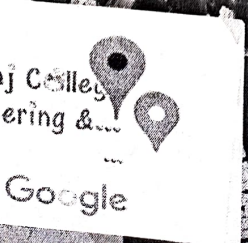 j College
ering &...
...
Google